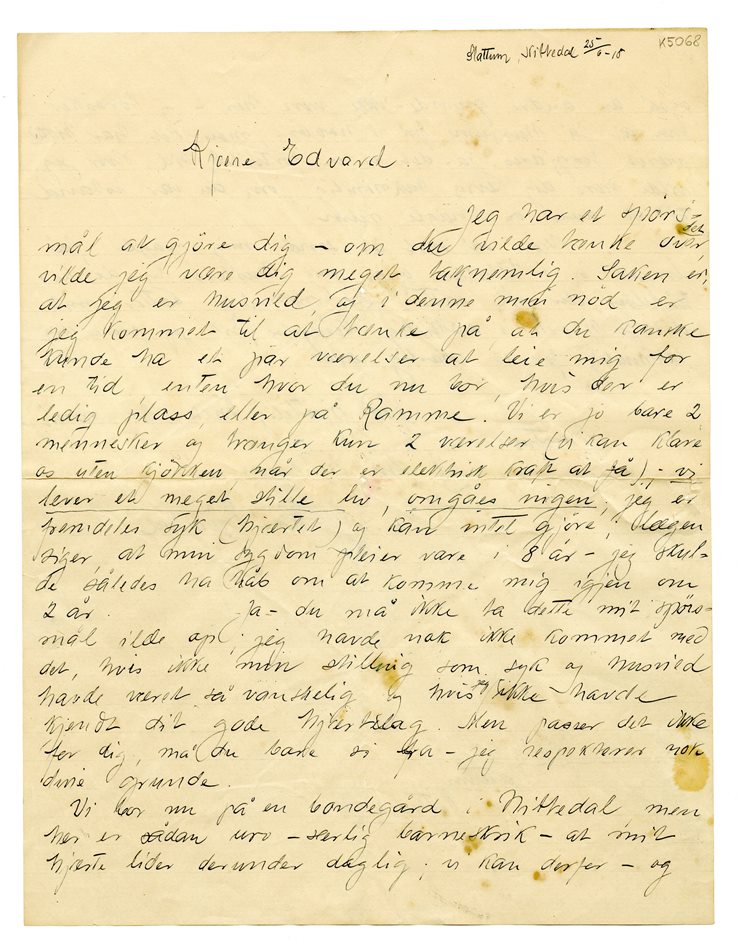 Slattum, Nittedal 25/6-18
K5068
Kjære Edvard.
Jeg har et spørs-
mål at gjöre dig – om du vilde tænke over det
vilde jeg være dig meget taknemlig. Saken er,
at jeg er husvild, og i denne min nöd er
jeg kommet til at tænke på at du kanske
kunde ha et par værelser at leie mig for
en tid enten hvor du nu bor, hvis der er
ledig plass, eller på Ramme. Vi er jo bare 2
mennesker og trænger kun 2 værelser (vi kan klare
os uten kjökken, når der er elektrisk kraft at få), – vi
lever et meget stille liv, omgåes ingen; jeg er
fremdeles syk (hjærtet) og kan intet gjöre; lægen
siger, at min sygdom pleier vare i 8 år – jeg skul-
de således ha håb om at komme mig igjen om
2 år. Ja – du må ikke ta dette mit spörs-
mål ilde op; jeg havde nok ikke kommet med
det, hvis ikke min stilling som syk og husvild
havde været så vanskelig og hvis jeg ikke havde
kjendt dit gode hjertelag. Men passer det ikke
for dig, må du bare si fra – jeg respekterer nok
dine grunde.
Vi bor nu på en bondegård i Nittedal, men
her er sådan uro – særlig barneskrik – at mit
hjærte lider derunder daglig; vi kan derfor – og